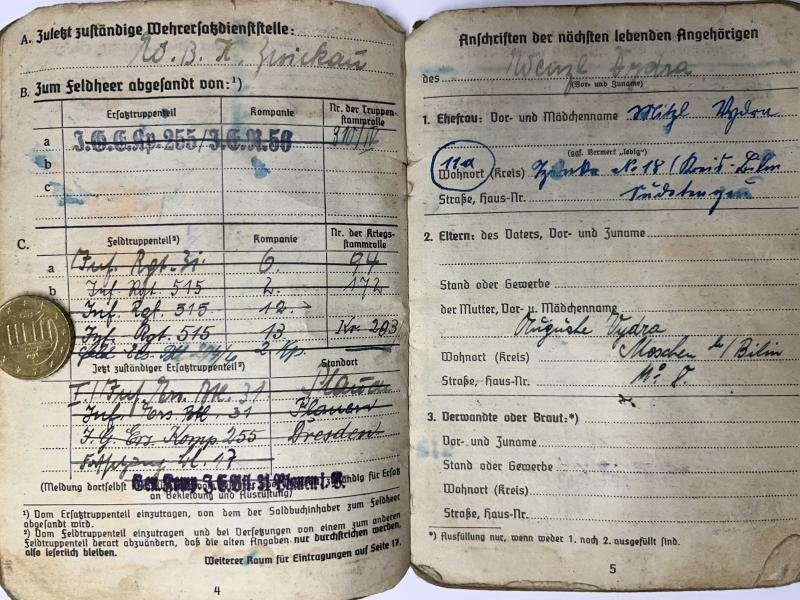 A. Zuletzt zuständige Wehrersatzdienststelle:
W. B. K. Zwickau
B. Zum Feldheer abgesandt von:¹)
Ersatztruppenteil Kompanie Nr. der Truppen-
stammrolle
a J.G.E.Kp. 255/J.E.R. 56
b
c
C. Feldtruppenteil²) Kompanie Nr. der Kriegs-
stammrolle
a Inf. Rgt. 31 6. 94
b Inf Rgt. 515 2. 172
Inf. Rgt. 515 12.
Inf. Rgt 515 13 Kr. 203
2 Kp.
Jetzt zuständiger Ersatztruppenteil²) Standort
I./Inf. Ers. Btl. 31 Plauen
Inf. Ers Btl 31 Plauen
I. G. Ers. Komp 255 Dresden
Fortsetzung Bl. 17
(Meldung dortselbst Gen. Komp. J.E.Btl. 31 Plauen i. V. ständig für Ersatz
an Bekleidung und Ausrüstung)
¹) Vom Ersatztruppenteil einzutragen, von dem der Soldbuchinhaber zum Feldheer
abgesandt wird.
²) Vom Feldtruppenteil einzutragen und bei Versetzungen von einem zum anderen
Feldtruppenteil derart abzuändern, daß die alten Angaben nur durchstrichen werden,
also leserlich bleiben.
Weiterer Raum für Eintragungen auf Seite 17.
4
Anschriften der nächsten lebenden Angehörigen
des Wenzl Vydra
(Vor- und Zuname)
1. Ehefrau: Vor- und Mädchenname Mitzl Vydra
(ggf. Vermerk „ledig")
11a
Wohnort (Kreis) No 18 / Kreis-Bilin
Straße, Haus-Nr. Sudetengau
2. Eltern: des Vaters, Vor- und Zuname
Stand oder Gewerbe
der Mutter, Vor- u. Mädchenname
Auguste Vydra
Wohnort (Kreis) Moschen b/Bilin
Straße, Haus-Nr. No 8.
3. Verwandte oder Braut:*)
Vor- und Zuname
Stand oder Gewerbe
Wohnort (Kreis)
Straße, Haus-Nr.
*) Ausfüllung nur, wenn weder 1. noch 2. ausgefüllt sind.
5